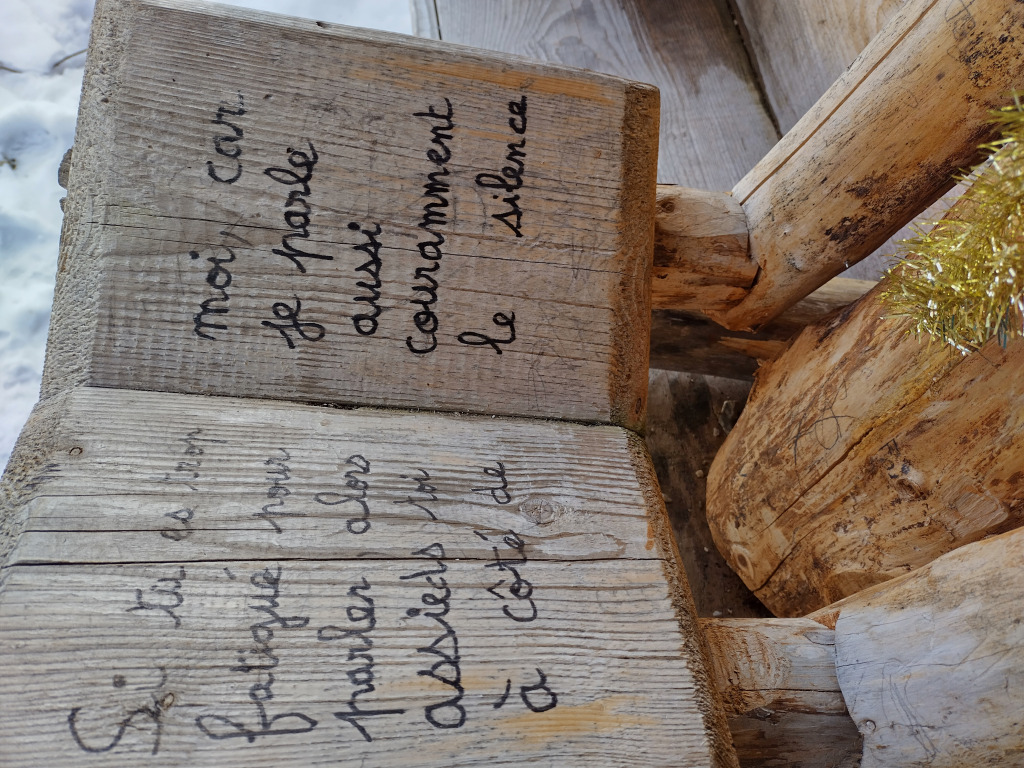 Si tu es trop
fatigué pour
parler alors
assieds toi
à côté de
moi, car
je parle
aussi
couramment
le silence